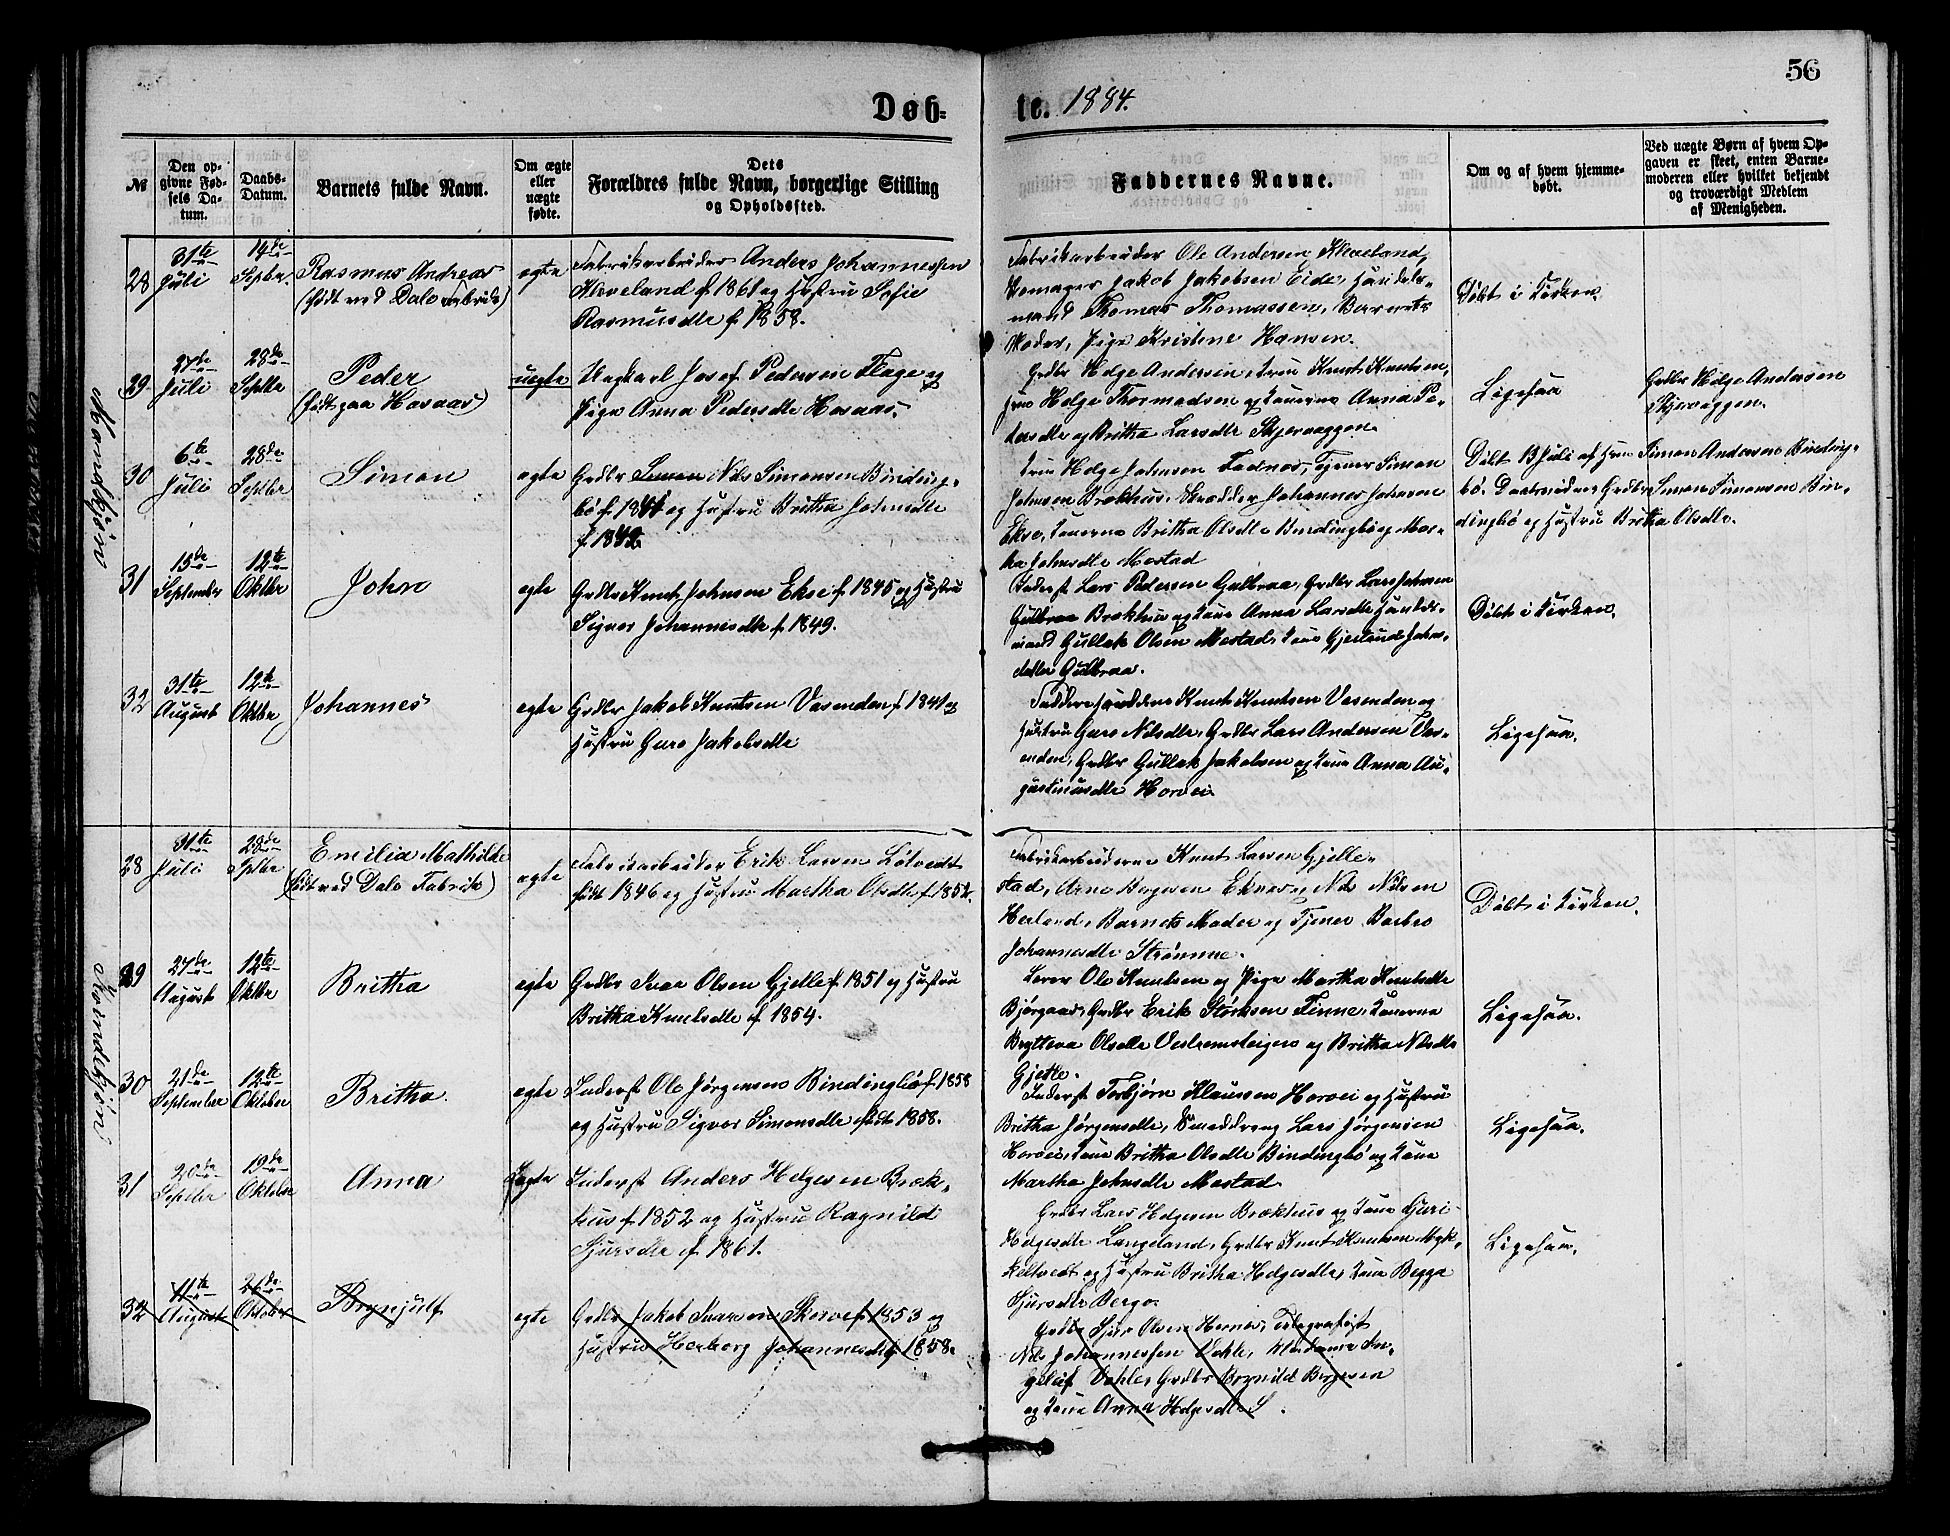 56
Døb-
te. 1884.
№
Den op-
givne Fød-
sels Da-
tum.
Daabs-
Datum.
Barnets fulde Navn.
Om ægte
eller
uægte
fødte.
Dets
Forældres fulde Navn, borgerlige Stilling
og Opholdssted.
Faddernes Navne.
Om og af hvem hjemme-
døbt.
Ved uægte Børn af hvem Op-
gaven er skeet, enten Barne-
moderen eller hvilket bekjendt
og troværdigt Medlem
af Menigheden.
Mandkjøn
28
31te
Juli
14de
Septbr.
Rasmus Andreas
(født ved Dale Fabrik)
egte
Fabrikarbeider Anders Johannessen
Kleveland f. 1861 og Hustru Sofie
Rasmusdtr f. 1858.
Fabrikarbeider Ole Andersen Kleveland,
Jakob Jakobsen Eide, Handels-
mand Thomas Thomassen, Barnets
Moder, Pige Kristine Hansen.
Döbt i Kirken.
29
27de
Juli
28de
Septbr
Peder
(født paa Hosaas)
uegte
Ungkarl Josef Pedersen Flage og
Pige Anna Pedersdtr Hosaas.
Grdbr Helge Andersen, Knut Knutsen,
Helge Thormodsen og Anna Pe-
dersdtr og Britha Larsdtr Skjerveggen
Ligesaa
Grdbr Helge Andersen
Skjerveggen.
30
6te
Juli
28de
Septbr
Simon
egte
Grdbr Simon Nils Simonsen Binding-
bö f. 1841 og Hustru Britha Johnsdtr
f. 1842
Helge Johnsen Fadnes, Tjener Simon
Johnsen Brækhus, Skrædder Johannes Johnsen
Ekse, Britha Olsdtr Bindingbö og Mar-
tha Johnsdtr Mestad
Döbt 13 Juli af Simon Andersen Binding-
bö. Daabsvidner Grdbr Simon Simonsen Bin-
dingbö og Hustru Britha Olsdtr.
31
15de
September
12te
Oktbr
John
egte
Grdbr Knut Johnsen Ekse f. 1845 og Hustru
Signor Johannesdtr f. 1849.
Inderst Lars Pedersen Gulbraa, Grdbr Lars Johnsen
Gulbraa Brækhus og Anna Larsdtr
mand Gullek Olsen Mestad, Gjertrud Johns-
datter Gulbraa.
Döbt i Kirken.
32
31te
August
12te
Oktbr
Johannes
egte
Grdbr Jakob Knutsen Vasenden f. 1841 og
Hustru Guro Jakobsdtr
Knut Knutsen Vasenden og
Hustru Guro Nilsdtr, Grdbr Lars Andersen Vas-
enden, Grdbr Gullek Jakobsen og Anna Au-
gustinusdtr Horvei
Ligesaa.
Kvindekjøn
28
31te
Juli
28de
Sptbr
Emilia Mathilde
(født ved Dale Fabrik)
egte
Fabrikarbeider Erik Larsen Lötvedt
født 1846 og Hustru Martha Olsdtr f. 1852.
Fabrikarbeiderne Knut Larsen Gjelle-
stad, Arne Bergesen Eknes, Nils Nilsen
Herland, Barnets Moder og Tjener Barbro
Johannesdtr Strømme.
Döbt i Kirken.
29
27de
August
12te
Oktbr
Britha
egte
Grdbr Ivar Olsen Gjelle f. 1851 og Hustru
Britha Knutsdtr f. 1854.
Lærer Ole Knutsen og Pige Martha Knutsdtr
Bjørgaas, Grdbr Erik Størksen Finne,
Brytteva Olsdtr og Britha Nilsdtr
Gjelle.
Ligesaa.
30
21de
September
12te
Oktober
Britha
egte
Inderst Ole Jørgensen Bindingbö f. 1858
og Hustru Signor Simonsdtr født 1858.
Inderst Torbjørn Klaussen Horvei og Hustru
Britha Jørgensdtr, Lars Jørgensen
Horvei, Britha Olsdtr Bindingbö og
Martha Johnsdtr Mestad
Ligesaa.
31
20de
Septbr
19de
Oktober
Anna
egte
Inderst Anders Helgesen Bræk-
hus f. 1852 og Hustru Ragnild
Sjursdtr f. 1861.
Grdbr Lars Helgesen Brækhus og Guri
Helgesdtr Langeland, Grdbr Knut Knutsen Myk-
keltvedt og Hustru Britha Helgesdtr, Begga
Sjursdtr Berge
Ligesaa.
32
11te
August
26de
Oktober
Brynjulf
egte
Grdbr Jakob Ivarsen Skorve f. 1853 og
Hustru Herborg Johannesdtr f. 1858.
Grdbr Sjur Olsen Hernes, Telegrafist
Nils Johannessen Vohle, Madame In-
geleif Vohle, Grdbr Brynild Bergesen
og Anna Helgesdtr S.